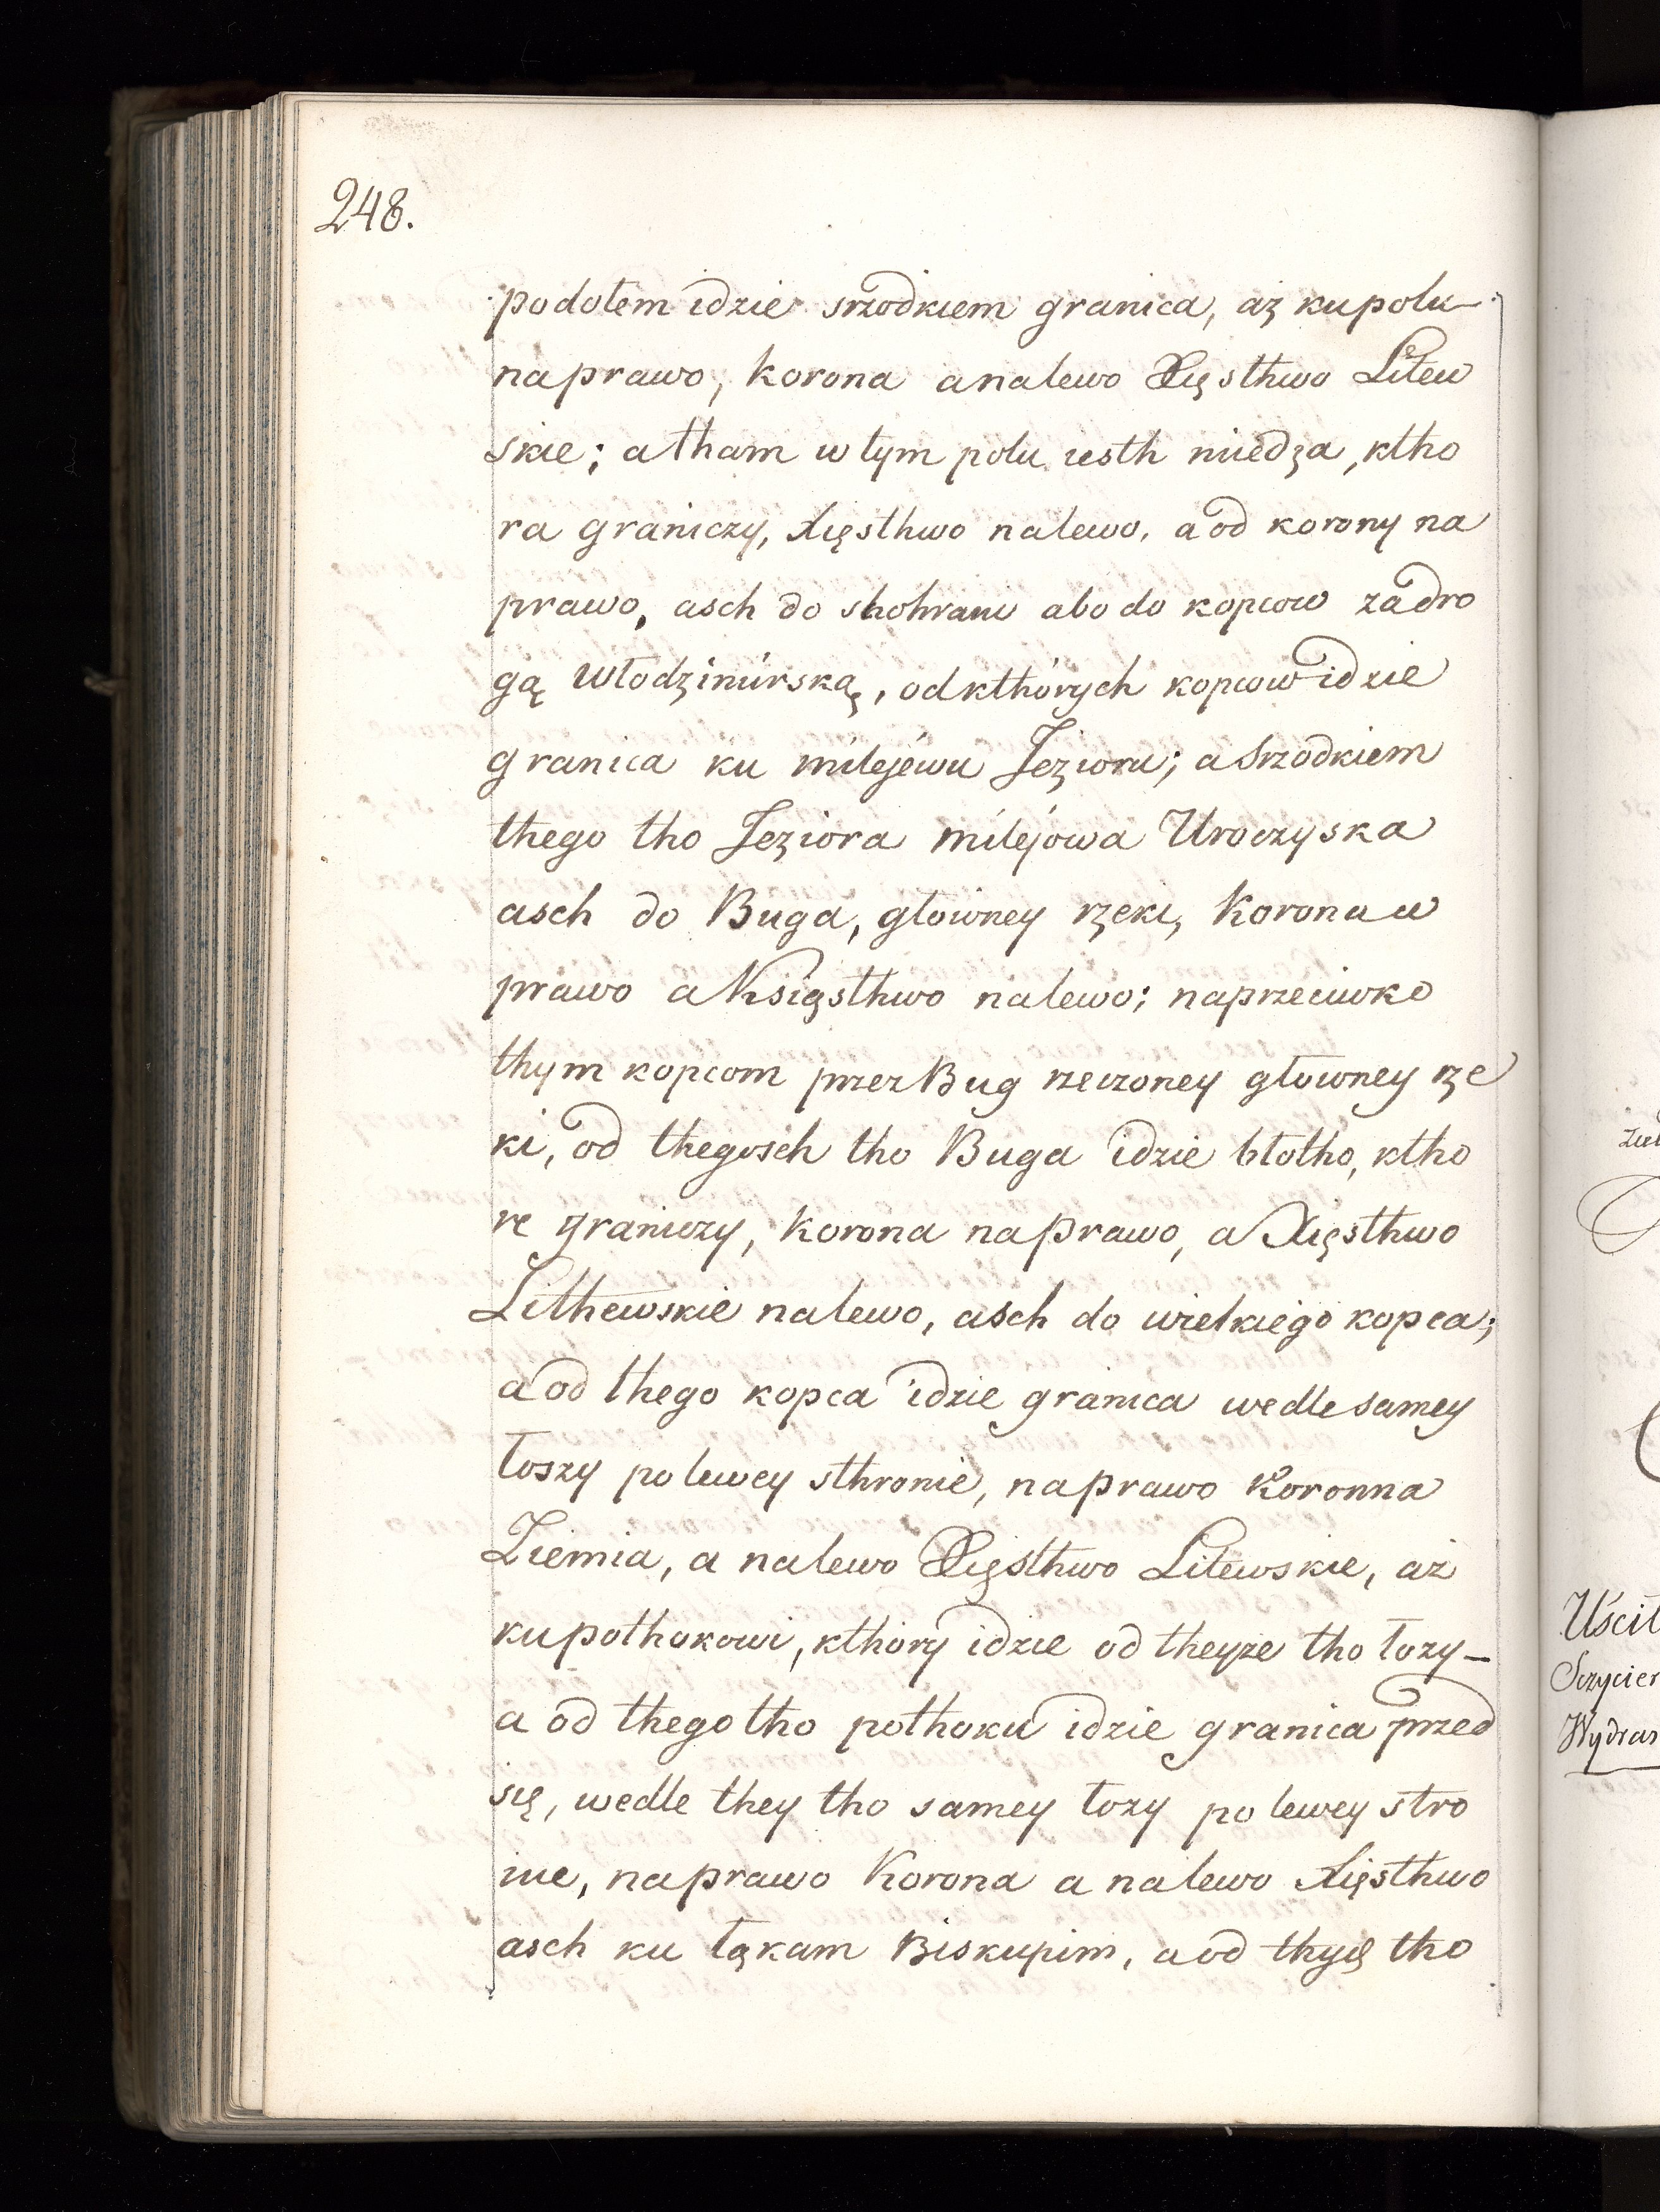 248.
podołem idzie srzodkiem granica, aż kupolu
naprawo, korona analewo Xięsthwo Litew
skie; atham wtym polu iesth miedza, ktho
ra graniczy, Xięsthwo nalewo, a od korony na
prawo, asch do shohranu abo do kopcow zadro
gą włodzimirską, odkthórych kopcow idzie
granica ku milejewu Jezioru; a srzodkiem
thego tho Jeziora milejowa Uroczyska
asch do Buga, głowney rzeki, Korona w
prawo a Księsthwo nalewo; naprzeciwko
thym kopcom przez Bug rzeczoney głowney rze
ki, od thegosch tho Buga idzie błotho, ktho
re graniczy, Korona naprawo, a Xięsthwo
Lithewskie nalewo, asch do wielkiego kopca;
a od thego kopca idzie granica wedle samey
łoszy po lewey sthronie, naprawo Koronna
Ziemia, a nalewo Xięsthwo Litewskie, aż
kupothokowi, kthory idzie od theyże tho łozy –
a od thego tho pothoku idzie granica przed
się, wedle they tho samey łozy po lewey stro
nie, naprawo Korona a nalewo Xięsthwo
asch ku łąkam Biskupim, a od thych tho
Uścił
Szycier
Wydran